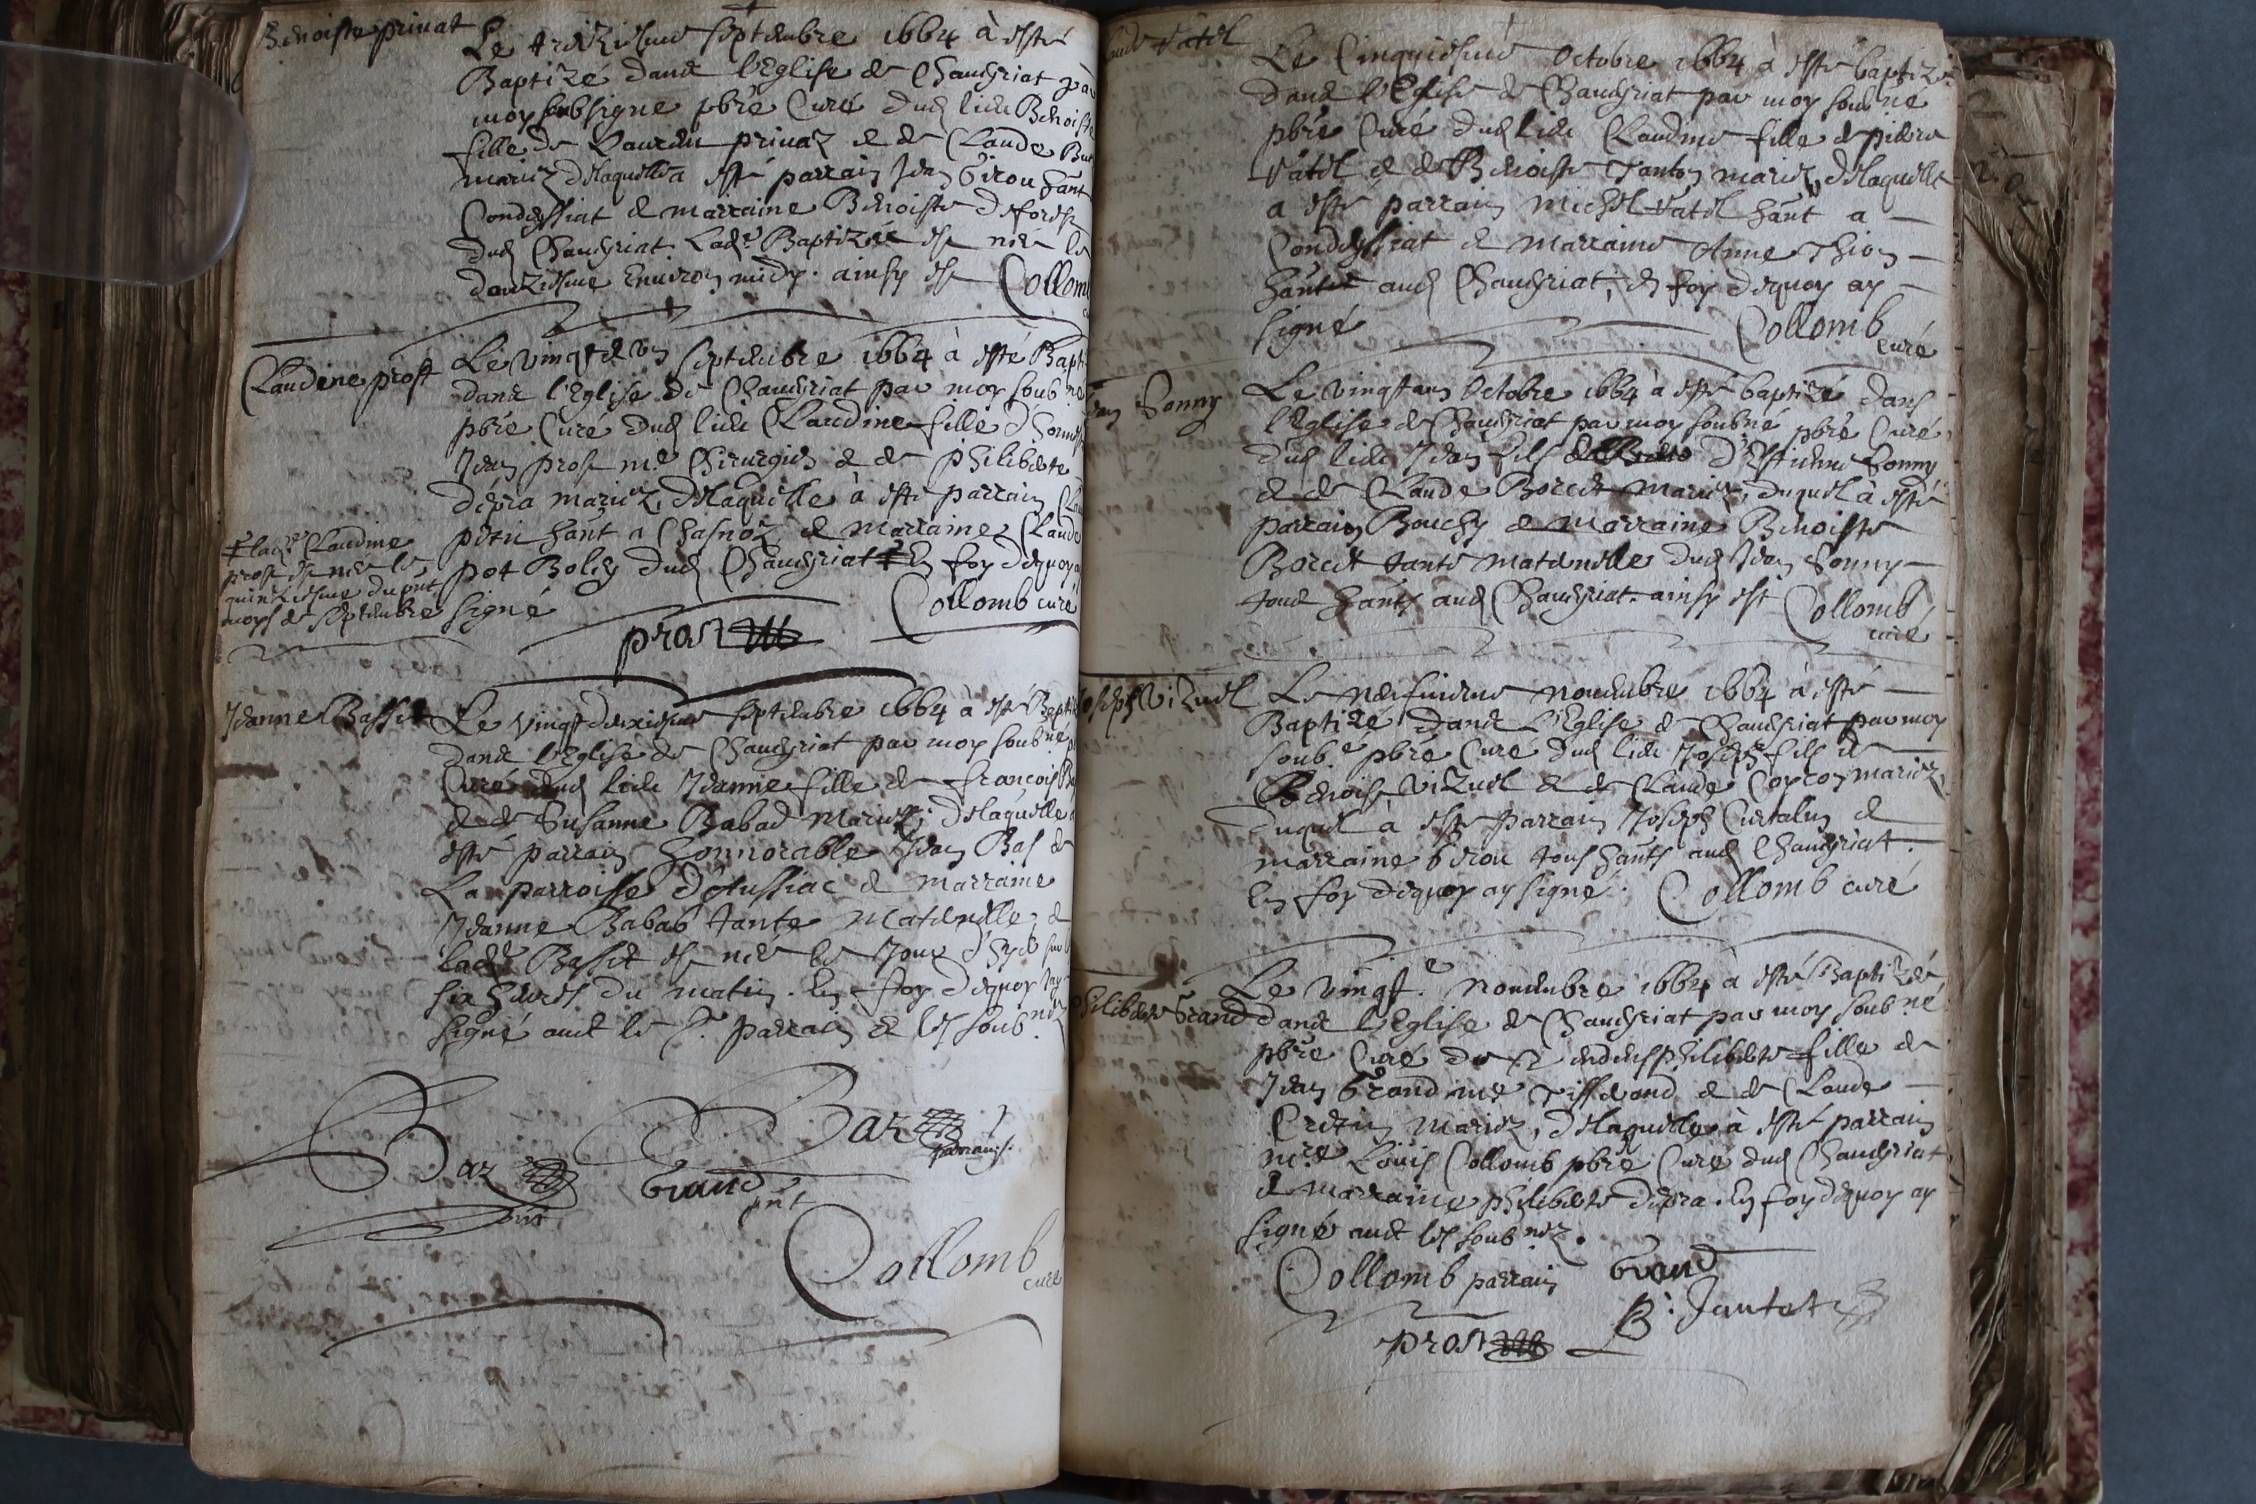 Benoiste privat
Le treiziesme septembre 1664 à esté
Baptizé dans l'Eglise de Chaveyriat par
moy soubsigne pbre Curé dud lieu Benoiste
fille de privaz et de Claude
mariez, delaquelle a esté parrain Jean Girou hant
Condeyssiat et marraine Benoiste
dud Chaveyriat Lade Baptizée est née le
douziesme environ midy. ainsy est Collomb
Claudine prost
Le vingt et un septembre 1664 à esté Bapti
dans l'Eglise de Chaveyriat par moy soub né
pbre Curé dud lieu Claudine fille d'honneste
Jean prost me Chirurgien et de philiberte
dépra mariez, delaquelle à esté parrain Clau
hant a et marraine Claude
pot dud Chaveyriat ‡ En foy dequoy ay
signé Collomb curé
‡ lade Claudine
prost est née le
quinziesme du pnt
moys de septembre
prost
Jeanne Basset
Le vingt deuxiesme septembre 1664 à esté Bapti
dans l'Eglise de Chaveyriat par moy soub né p
Curé dud lieu Jeanne fille de françois Ba
et de Susanne Babad mariez, delaquelle a
esté parrain honnorable Jean Bas de
La parroisse et marraine
Jeanne Babad tante maternelle, et
lade Basset est née le Jour d'hyer sur
six heures du matin. En foy dequoy Jay
signé avec le Sr. parrain et les soub nez
Baz
pnt
Grand
pnt
Baz
parrain.
Collomb
curé
Claude vatel
Le Cinquiesme Octobre 1664 à esté baptizé
dans l'Eglise de Chaveyriat par moy soub né
pbre Curé dud lieu Claudine fille de pierre
vatel et de Benoiste Tanton mariez, delaquelle
a esté parrain michel vatel hant a —
Condeyssiat et marraine Anne Thion —
hante aud Chaveyriat, en foy dequoy ay —
signé Collomb
curé
Jean Sonny
Le vingt Octobre 1664 à esté baptizé dans
l'Eglise de Chaveyriat par moy soub né pbre Curé
dud lieu Jean fils d'Estienne Sonny
et de Claude Borcet mariez, duquel à esté
parrain Bouchy et marraine Benoiste
Borcet tante maternelle dud Jean Sonny —
tous hants aud Chaveyriat. ainsy est Collomb
curé
Joseph Vizuel
Le neufviesme novembre 1664 à esté —
Baptizé dans l'Eglise de Chaveyriat par moy
soub.é pbre Curé dud lieu Joseph fils de
Benoist Vizuel et de Claude mariez,
duquel à esté parrain Joseph et
marraine Girou tous hants aud Chaveyriat.
En foy dequoy ay signé. Collomb curé
philiberte Grand
Le vingte. novembre 1664 à esté Baptizée
dans l'Eglise de Chaveyriat par moy soub né
pbre Curé philiberte fille de
Jean Grand me Tisserand et de Claude —
Cretin mariez, delaquelle à esté parrain
mre Louis Collomb pbre Curé dud Chaveyriat
et marraine philiberte depra. En foy dequoy ay
signé avec les soub nez.
Collomb parrain Grand
B. Jantet
prost